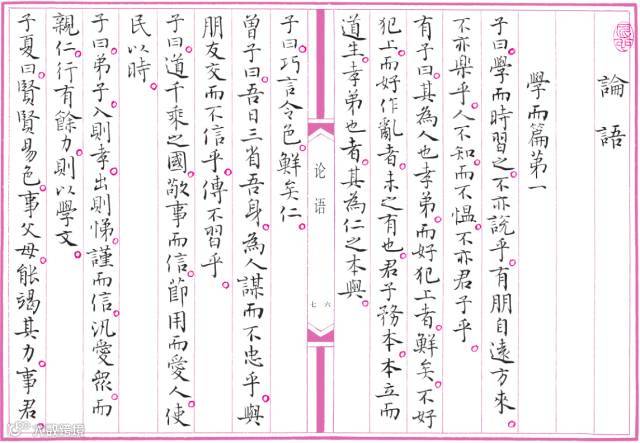 論語
學而篇第一
子曰學而時習之不亦說乎有朋自遠方來
不亦樂乎人不知而不慍不亦君子乎
有子曰其為人也孝弟而好犯上者鮮矣不好
犯上而好作亂者未之有也君子務本本立而
道生孝弟也者其為仁之本與
论语
六
七
子曰巧言令色鮮矣仁
曾子曰吾日三省吾身為人謀而不忠乎與
朋友交而不信乎傳不習乎
子曰道千乘之國敬事而信節用而愛人使
民以時
子曰弟子入則孝出則悌謹而信汎愛眾而
親仁行有餘力則以學文
子夏曰賢賢易色事父母能竭其力事君